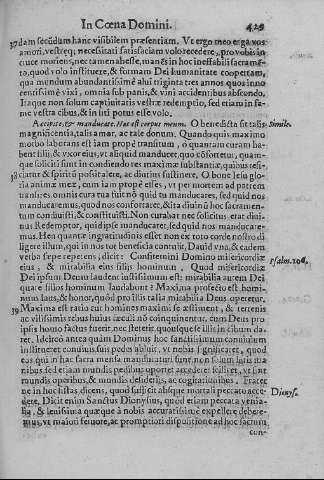 In Cœna Domini. 429
37 dam secũdum hanc visibilem præsentiam. Vt ergo meo erga vos
amori, vestręq; necessitati satisfaciam volo recedere, pro vobis in
cruce moriens, nec tamen abesse, manẽs in hoc ineffabili sacramẽ-
to, quod volo instituere, & formam Dei humanitate coopertam,
qua mundum abundantissimè alui triginta tres annos quos inno
centissimè vixi, omnia sub panis, & vini accidentibus abscondo.
Itaque non solum captiuitatis vestræ redemptio, sed etiam in fa-
me vestra cibus, & in siti potus esse volo.
Accipite, & manducate. Hoc est corpus meum. O benedicta sit talis Simile.
magnificentia, talis amor, ac tale donum. Quando quis maximo
morbo laborans est iam propè transitum, o quantam curam ha-
bent filij, & vxor eius, vt aliquid manducet, quo cõfortetur, quam-
que soliciti sunt in condiendo res maximæ substantiæ, quibus refi-
38 ciatur, & spiritũ possit alere, ac diutius sustinere. O bone Iesu glo-
ria animæ meæ, cum iam propè esses, vt per mortem ad patrem
transires, omnis cura tua fuit nõ quid tu manducares, sed quid nos
manducaremus, quod nos confortaret, & ita diuinũ hoc sacramen-
tum condidisti, & constituisti. Non curabat nec solicitus erat diui-
nus Redemptor, quid ipse manducaret, sed quid nos manducare-
mus. Heu quantæ ingratitudinis esset non ex toto corde nostro di
ligere illum, qui in nos tot beneficia contulit. Dauid vna, & eadem
verba sæpe repetens, dicit: Confitemini Domino misericordiæ
eius, & mirabilia eius filijs hominum. Quod misericordiæ Psalm. 106.
Dei ipsum Deum laudent iustissimum est: mirabilia autem Dei
quare filijs hominum laudabunt? Maxima profecto est homi-
num laus, & honor, quòd pro illis talia mirabilia Deus operetur.
39 Maxima est ratio cur homines maximi se æstiment, & terrenis
ac vilissimis rebus huius sæculi nõ coinquinentur, cum Deus pro
ipsis homo factus fuerit, nec steterit, quousque se illis in cibum da-
ret. Idcircò antea quàm Dominus hoc sanctissimum conuiuium
institueret, conuiuis suis pedes abluit, vt nobis significaret, quod
eos qui in hac sacra mensa manducaturi sunt non solùm sutis ma
nibus sed etiam mundis pedibus oportet accedere: scilicet, vt sint
mundis operibus, & mundis desiderijs, ac cogitationibus. Frater
ne in hoc sistas, dicens, quod sufficit absque mortali peccato acce-
dere. Dicit enim Sanctus Dionysius, quòd etiam peccata venia- Dionys.
lia, & leuissima quæque à nobis accuratissimè expellere debere-
mus, vt maiori feruore, ac promptiori dispositione ad hoc sacrum
con-